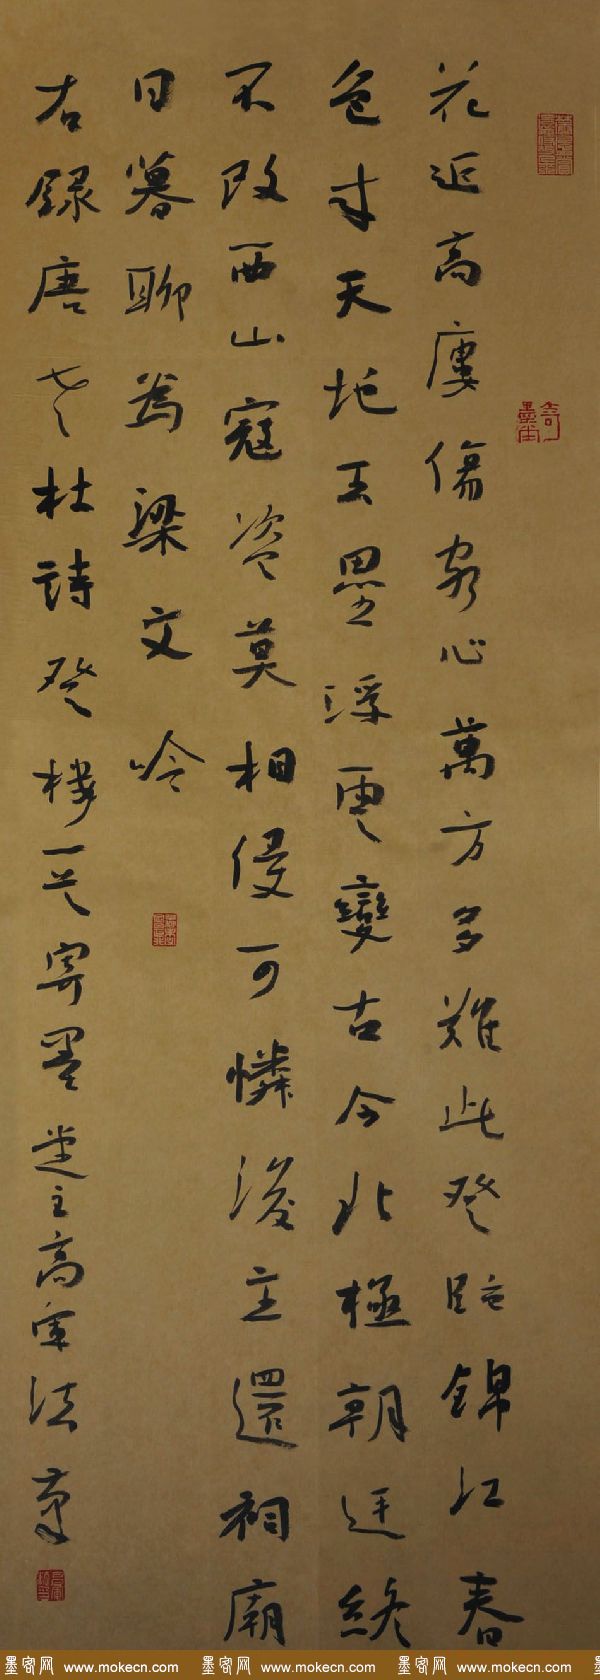 花近高廔傷客心萬方多難此登臨錦江春
色來天地玉壘浮雲變古今北極朝廷終
不改西山寇盜莫相侵可憐後主還祠廟
日暮聊為梁文吟
右録唐老杜詩登樓一首寄墨堂主高军法書
奇墨堂
墨客网 www.mokecn.com 墨客网 www.mokecn.com 墨客网 www.mokecn.com 墨客网 www.mokecn.com